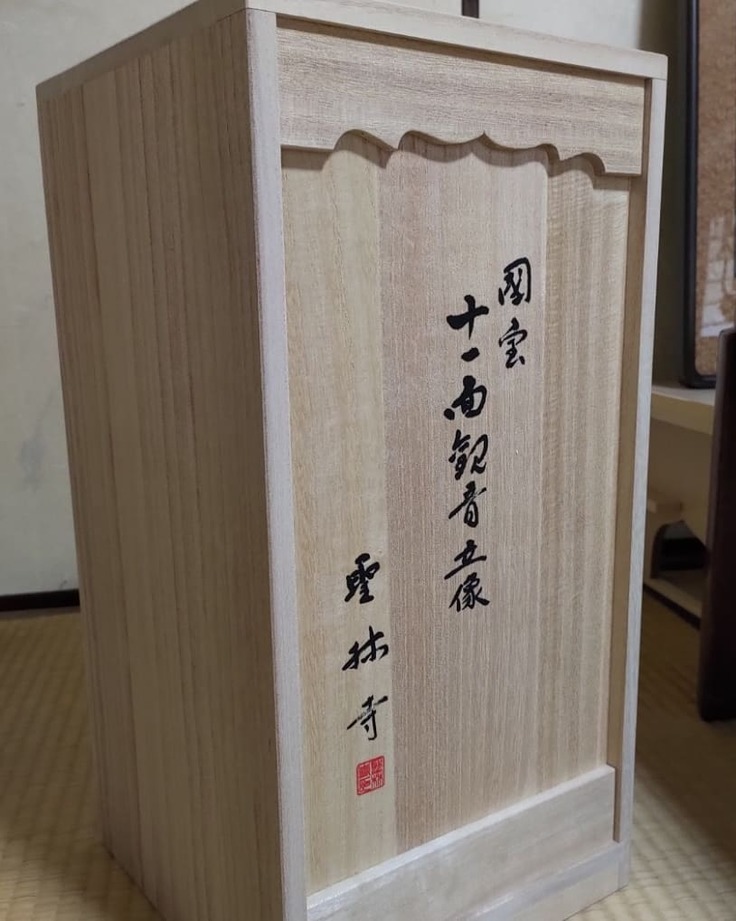 國宝
十一面観音立像
聖林寺